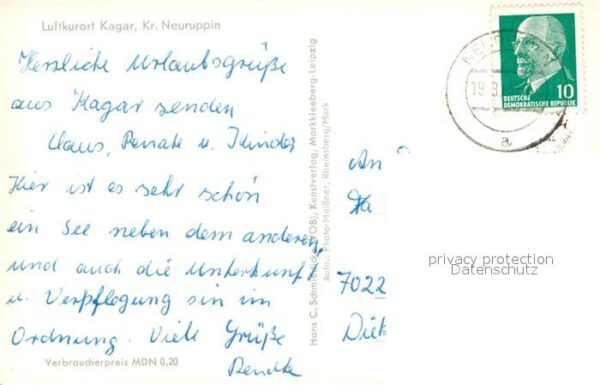 Luftkurort Kagar, Kr. Neuruppin
Herzliche Urlaubsgrüße
aus Kagar senden
Claus, Renate u. Kinder
Hier ist es sehr schön
ein See neben dem anderen,
und auch die Unterkunft
u. Verpflegung sin im
Ordnung. Viele Grüße
Renate
Verbraucherpreis MDN 0,20
Hans C. Schmiedicke (VOB), Kunstverlag, Markkleeberg-Leipzig
Aufn.: Photo-Meißner, Rheinsberg/Mark
10
DEUTSCHE
DEMOKRATISCHE REPUBLIK
An
7022
privacy protection
Datenschutz